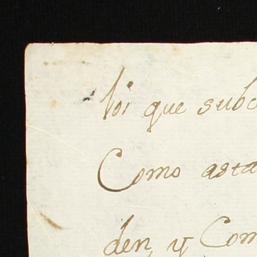 loi que subc
Como asta
den, y Com